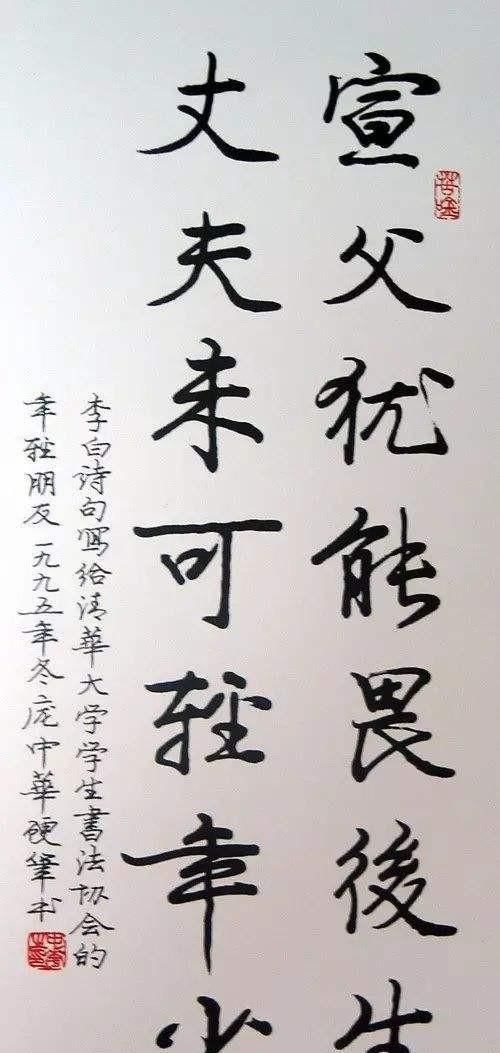 宣父犹能畏後生
丈夫未可輕年少
李白诗句寫给清華大学学生書法协会的
年輕朋友一九九五年冬庞中華硬筆书